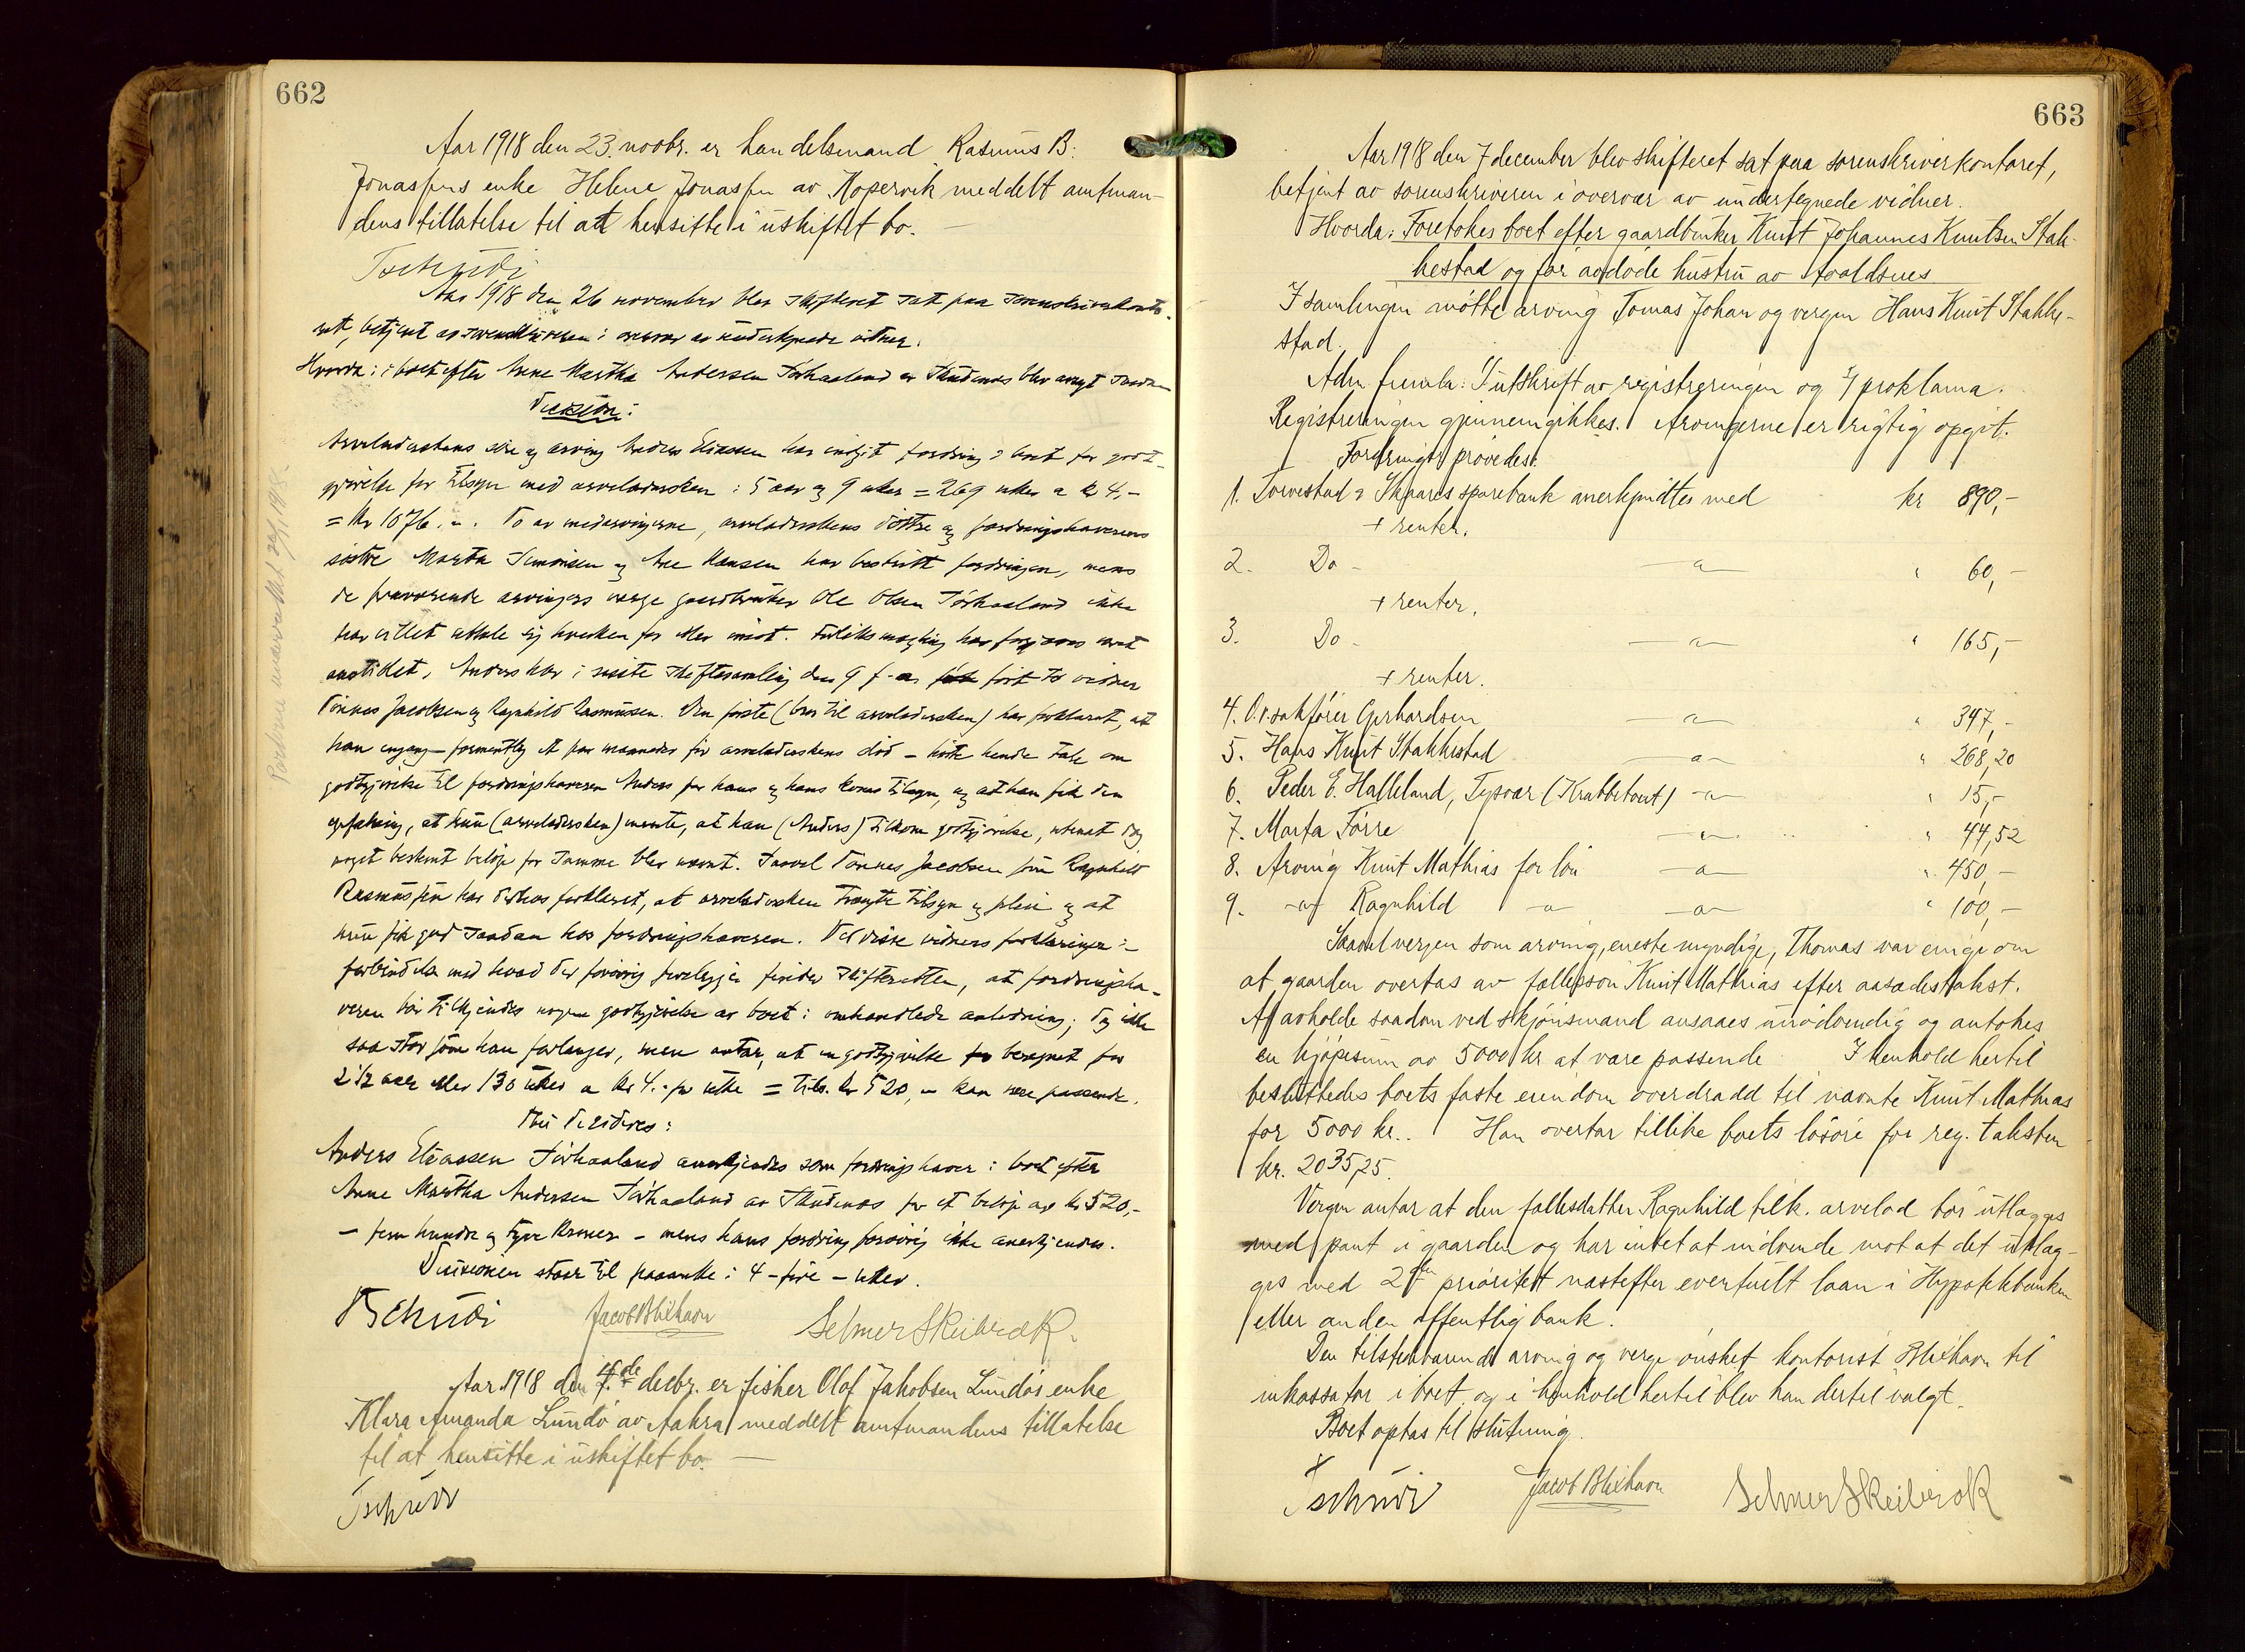 662
Aar 1918 den 23. novbr. er handelsmand Rasmus B.
Jonassens enke Helene Jonassen av Kopervik meddelt amtman-
dens tillatelse til at hensitte i uskiftet bo. —
Tschudi
Aar 1918 den 26 november blev skifteret sat paa sorenskriverkonto-
ret, betjent av sorenskriveren i overvær av undertegnede vidner.
Hvorda: i boet efter Anne Martha Andersen Tørhaaland av Skudenes blev avsagt saadan
Decision:
Arveladerskens søn og arving Anders Eliassen har indgit fordring i boet for godt-
gjørelse for tilsyn med arveladersken i 5 aar og 9 uker = 269 uker a kr 4,-
= Kr 1076.-. To av medarvingerne, arveladerskens døttre og fordringshaverens
søstre Marta Simonsen og Ane Hansen har bestridt fordringen, mens
de fraværende arvingers verge gaardbruker Ole Olsen Tørhaaland ikke
har villet uttale sig hverken for eller imot. Forliksmægling har forgjæves været
anstillet, Anders har i siste skiftesamling den 9 f. ført to vidner
Tønnes Jacobsen og Ragnhild Rasmussen. Den første (bror til arveladersken) har forklaret, at
han engang – formentlig et par maaneder før arveladerskens død – hørte hende tale om
godtgjørelse til fordringshaveren Anders for hans og hans kones tilsyn, og at han fik den
opfatning, at hun (arveladersken) mente, at han (Anders) tilkom godtgjørelse, uten at dog
noget bestemt beløp for samme blev nævnt. Saavel Tønnes Jacobsen som Ragnhild
Rasmussen har derhos forklaret, at arveladersken trængte tilsyn og pleie og at
hun fik god saadan hos fordringshaveren. Ved disse vidners forklaringer i
forbindelse med hvad der forøvrig foreligger finder skifteretten, at fordringsha-
veren bør tilkjendes nogen godtgjørelse av boet i omhandlede anledning; dog ikke
saa stor som han forlanger, men antar, at en godtgjørelse beregnet for
2 1/2 aar eller 130 uker a kr 4.- pr uke = tils. kr 520,- kan være passende.
Thi decideres:
Anders Eliassen Tørhaaland anerkjendes som fordringshaver i boet efter
Anne Martha Andersen Tørhaaland av Skudenes for et beløp av kr 520,-
– fem hundre og tyve kroner – mens hans fordring forøvrig ikke anerkjendes.
Decisionen staar til paaanke i 4 – fire – uker.
Tschudi Jacob Blikhavn Selmer Skeibrok
Aar 1918 den 4.de decbr. er fisker Olaf Jakobsen Lundøs enke
Klara Amanda Lundø av Aakra meddelt amtmandens tillatelse
til at hensitte i uskiftet bo. —
Tschudi
663
Aar 1918 den 7 december blev skifteret sat paa sorenskriverkontoret,
betjent av sorenskriveren i overvær av undertegnede vidner.
Hvorda: Foretokes boet efter gaardbruker Knut Johannes Knutsen Stak-
kestad og før avdøde hustru av Avaldsnes
I samlingen møtte arving Tomas Johan og vergen Hans Knut Stakke-
stad.
Adm fremla: Utskrift av registreringen og proklama.
Registreringen gjennemgikkes. Arvingerne er rigtig opgit.
Fordringer prøvedes:
1. Torvestad & Skaares sparebank anerkjendtes med kr 890,-
+ renter.
2. Do - — a — " 60,-
+ renter.
3. Do - — a — " 165,-
+ renter.
4. O.r.sakfører Gerhardsen — a — " 347,-
5. Hans Knut Stakkestad — a — " 268,20
6. Peder E. Halleland, Tysvær (Krabbetveit) — a — " 15,-
7. Marta Førre — a — " 44,52
8. Arving Knut Mathias for løn — a — " 450,-
9. — a — Ragnhild — a — — a — " 100,-
Saavel vergen som arving, eneste myndige, Thomas var enige om
at gaarden overtas av fællessøn Knut Mathias efter aasædestakst.
At avholde saadan ved skjønsmænd ansaaes unødvendig og antokes
en kjøpesum av 5000 kr at være passende. I henhold hertil
besluttedes boets faste eiendom overdradd til nævnte Knut Mathias
for 5000 kr. Han overtar tillike boets løsøre for reg. taksten
kr. 2035,25.
Vergen antar at den fællesdatter Ragnhild tilk. arvelod bør utlægges
med pant i gaarden og har intet at indvende mot at det utlæg-
ges med 2den prioritet næstefter eventuelt laan i Hypothekbanken
eller anden offentlig bank.
Den tilstedeværende arving og verge ønsket kontorist Blikhavn til
inkassator i boet og i henhold hertil blev han dertil valgt.
Boet optas til slutning.
Tschudi Jacob Blikhavn Selmer Skeibrok